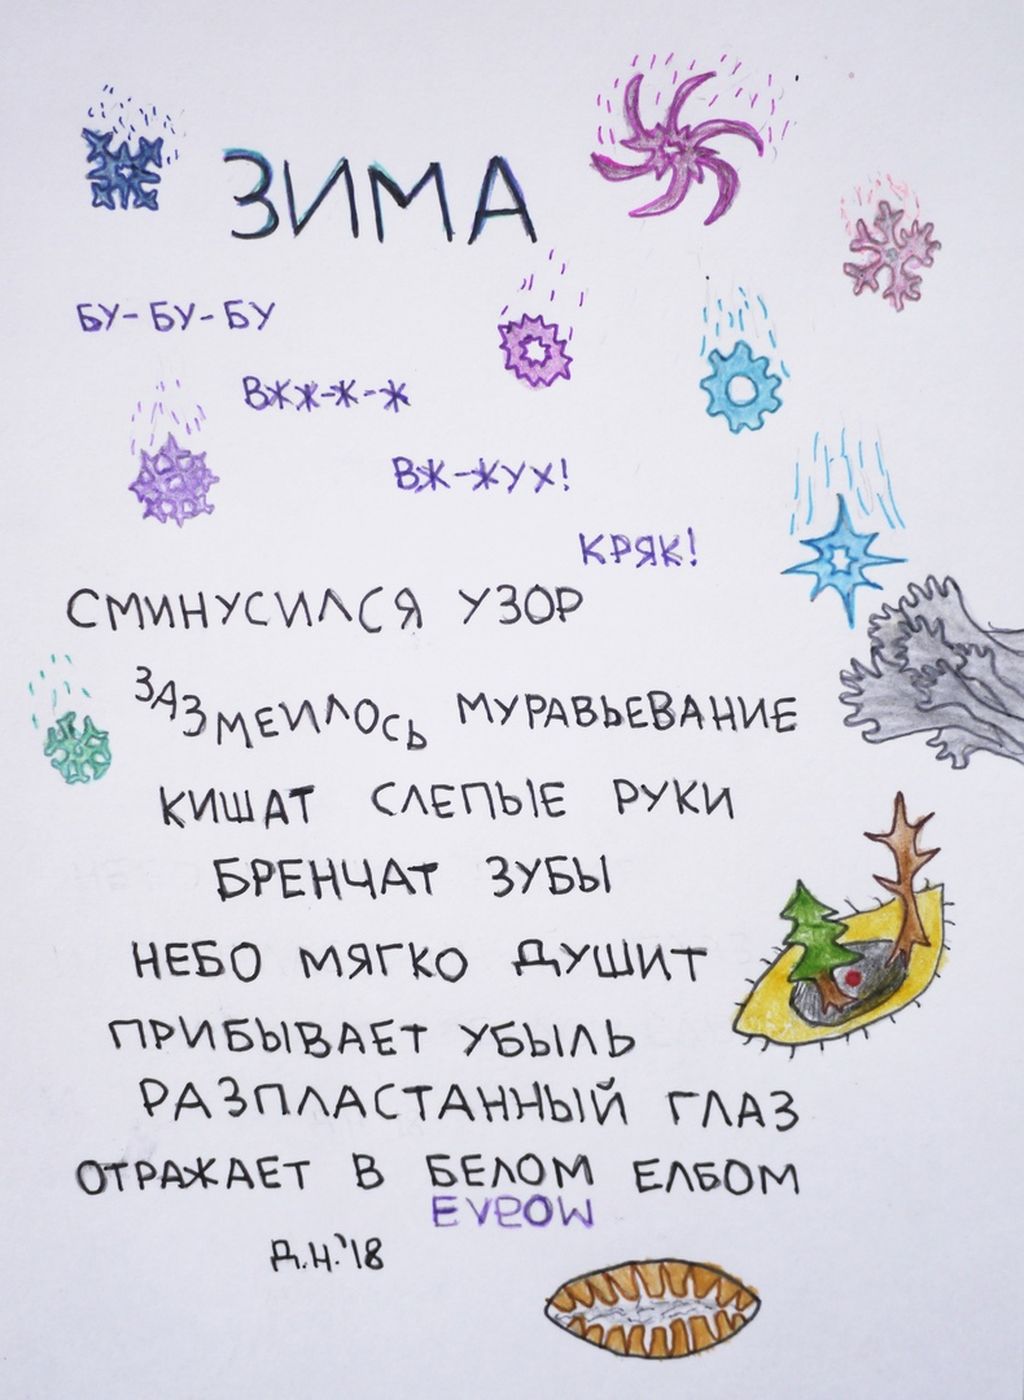 ЗИМА
БУ-БУ-БУ
ВЖЖ-Ж-Ж
ВЖ-ЖУХ!
КРЯК!
СМИНУСИЛСЯ УЗОР
ЗАЗМЕИЛОСЬ МУРАВЬЕВАНИЕ
КИШАТ СЛЕПЫЕ РУКИ
БРЕНЧАТ ЗУБЫ
НЕБО МЯГКО ДУШИТ
ПРИБЫВАЕТ УБЫЛЬ
РАЗПЛАСТАННЫЙ ГЛАЗ
ОТРАЖАЕТ В БЕЛОМ ЕЛБОМ
Д.Н.'18